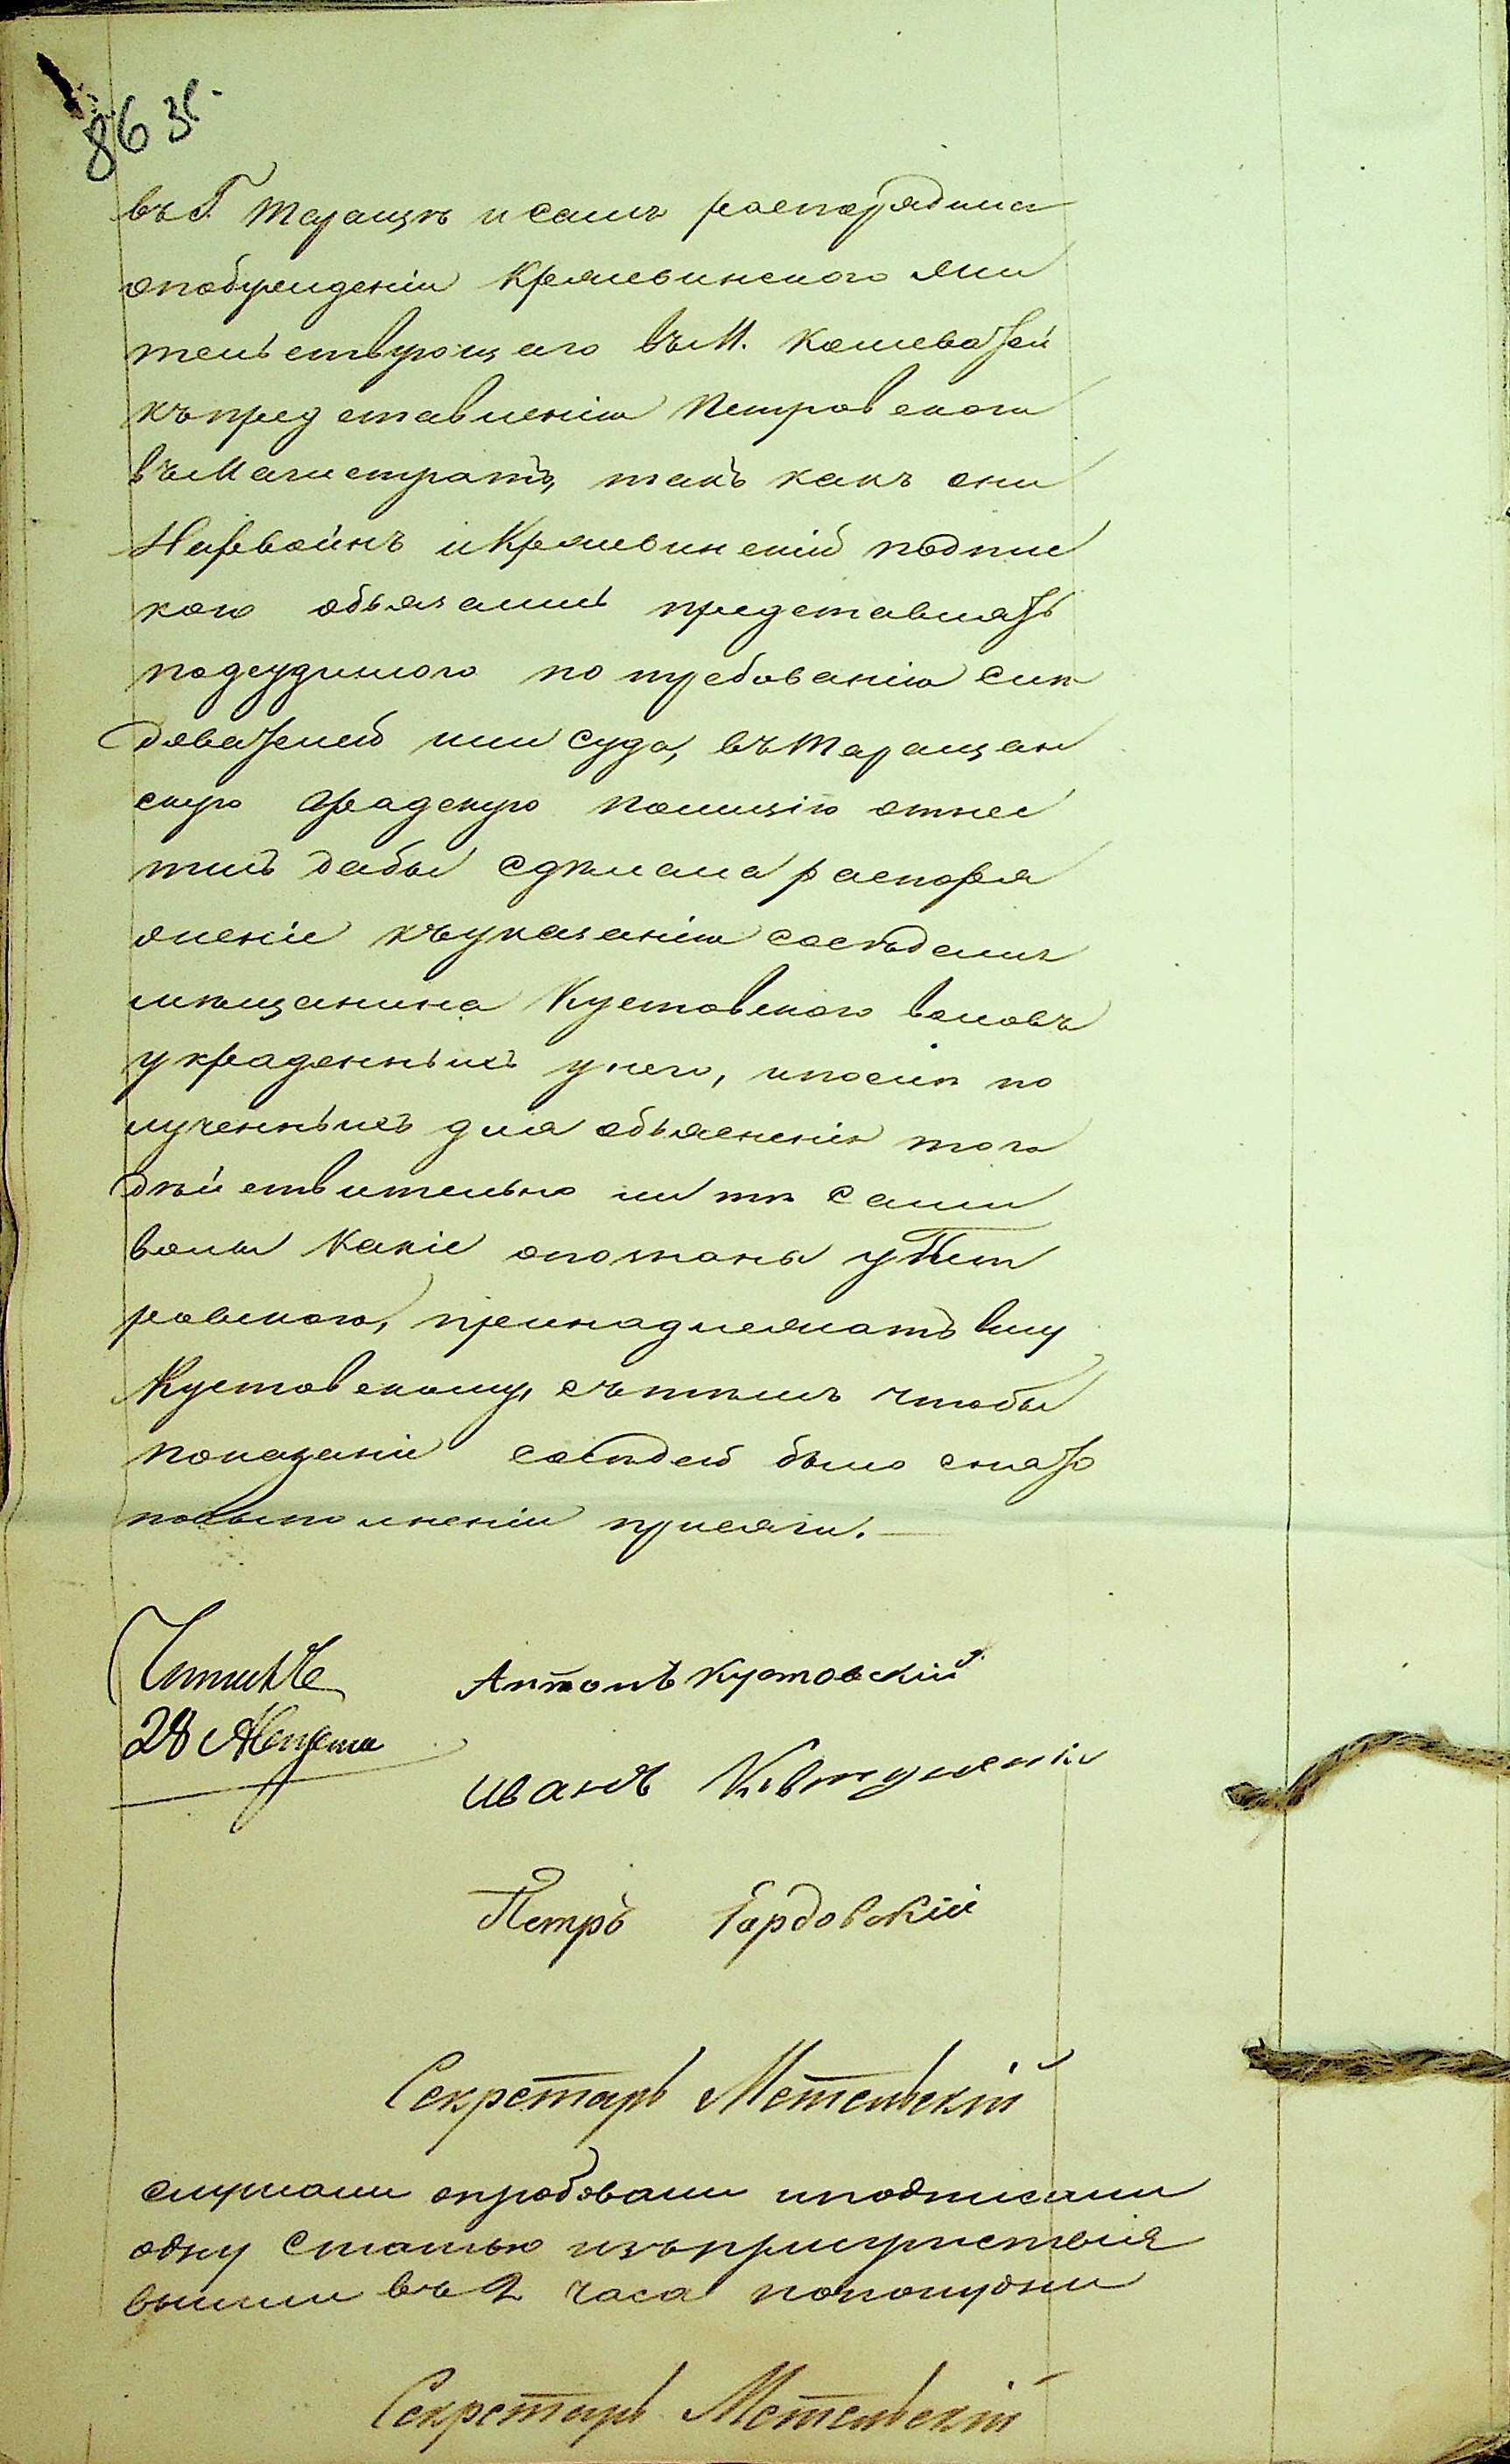 86 зв.
въ Г. Таращѣ и самъ распорядился
опобужденіи Крялевинского жи
тельствующаго въ М. Кошеватой
къ представленію Петровского
въ Магистратъ, такъ какъ они
и Крялевинскій подпис
кою обязались представлять
подсудимого по требованію слѣ
дователей или суда, въ Таращан
скую Градскую Полицію отнес
тись дабы сдѣлала распоря
женіе къ указанію сосѣдами
мѣщанина Кустовского воловъ
украденныхъ у него, и послѣ по
лученныхъ для объясненія того
дѣйствительно ли тѣ сами
волы какіе опознаны у Пет
ровского, принадлежатъ ему
Кустовскому, съ тѣмъ чтобы
показаніе сосѣдей было снято
по выполненіи присяги.
28 Августа
Антонъ Кустовскій
Иванъ
Петръ Гордовскій
Секретарь Метельскій
слушали опробовали и подписали
одну статью изъ присутствія
вышли въ 2 часа пополудни
Секретарь Метельскій